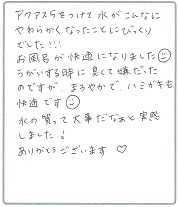 アクアスSをつけて水がこんなに
やわらかくなったことにびっくり
でした!!!
お風呂が快適になりました☺
うがいする時に臭くて嫌だった
のですが、まろやかで、ハミガキも
快適です☺
水の質って大事だなぁと実感
しました!
ありがとうございます♡